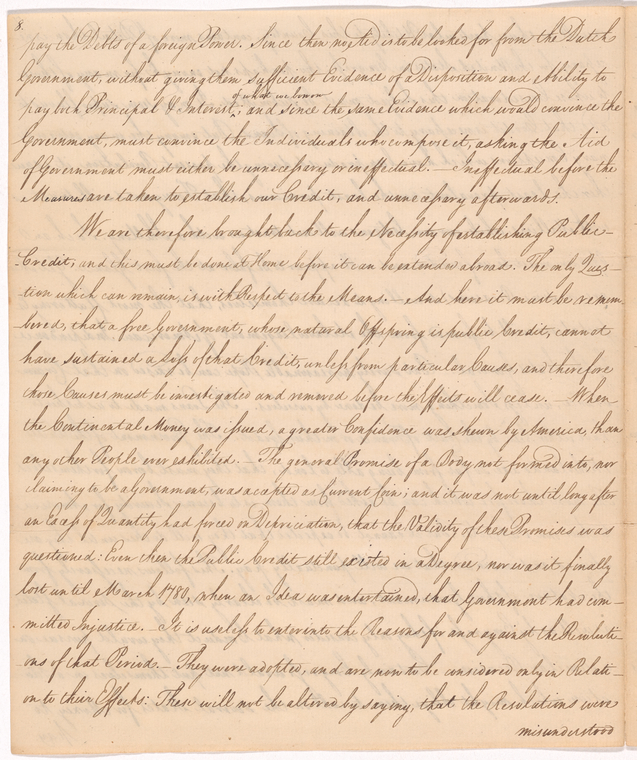 8.
pay the Debts of a foreign Power. Since then no Aid is to be looked for from the Dutch
Government, without giving them sufficient Evidence of a Disposition and Ability to
of what we borrow
pay both Principal & Interest; and since the same Evidence which would convince the
Government, must convince the Individuals who compose it, asking the Aid
of Government must either be unnecessary or ineffectual. — Ineffectual before the
Measures are taken to establish our Credit, and unnecessary afterwards.
We are therefore brought back to the Necessity of establishing Public
Credit, and this must be done at Home before it can be extended abroad. The only Ques-
tion which can remain, is with Respect to the Means. — And here it must be remem
bered, that a free Government, whose natural Offspring is public Credit, cannot
have sustained a Loss of that Credit, unless from particular Causes, and therefore
those Causes must be investigated and removed before the Effects will cease. — When
the Continental Money was issued, a greater Confidence was shewn by America, than
any other People ever exhibited. The general Promise of a Body, not formed into, nor
claiming to be a Government, was accepted as Current Coin; and it was not until long after
an Excess of Quantity had forced on Depreciation, that the Validity of these Promises was
questioned: Even then the Public Credit still existed in a Degree, nor was it finally
lost until March 1780, when an Idea was entertained, that Government had com-
mitted Injustice. — It is useless to enter into the Reasons for and against the Resoluti-
ons of that Period. — They were adopted, and are now to be considered only in Relati-
on to their Effects: These will not be altered by saying, that the Resolutions were
misunderstood